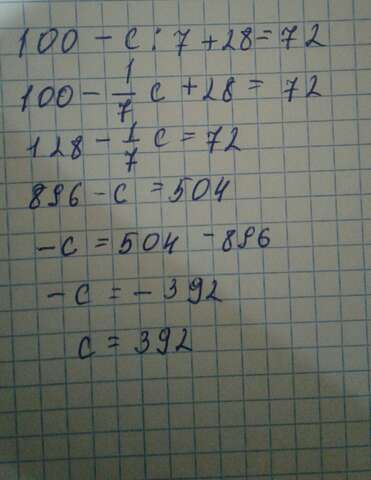 100 - c : 7 + 28 = 72
100 - 1/7 c + 28 = 72
128 - 1/7 c = 72
896 - c = 504
-c = 504 - 896
-c = - 392
c = 392